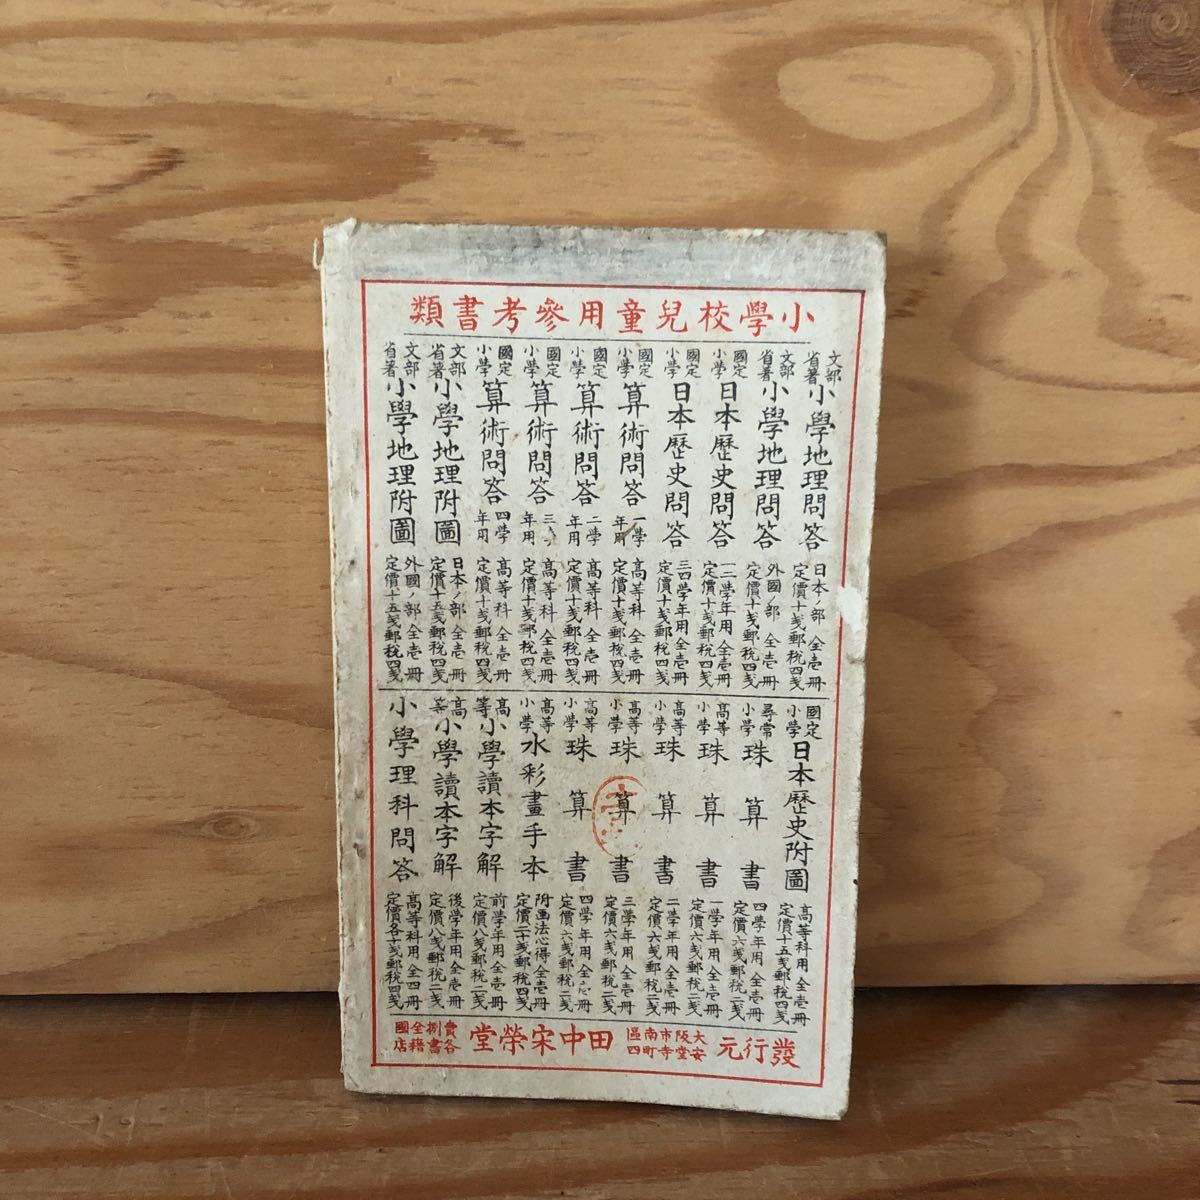 小學校兒童用參考書類
文部省著 小學地理問答 日本ノ部 全壱冊 定價十戔郵税四戔
文部省著 小學地理問答 外國ノ部 全壱冊 定價十戔郵税四戔
國定小學 日本歷史問答 一二學年用 全壱冊 定價十戔郵税四戔
國定小學 日本歷史問答 三四學年用 全壱冊 定價十戔郵税四戔
國定小學 算術問答 一學年用 高等科 全壱冊 定價十戔郵税四戔
國定小學 算術問答 二學年用 高等科 全壱冊 定價十戔郵税四戔
國定小學 算術問答 三年用 高等科 全壱冊 定價十戔郵税四戔
國定小學 算術問答 四學年用 高等科 全壱冊 定價十戔郵税四戔
文部省著 小學地理附圖 日本ノ部 全壱冊 定價十五戔郵税四戔
文部省著 小學地理附圖 外國ノ部 全壱冊 定價十五戔郵税四戔
國定小學 日本歷史附圖 高等科用 全壱冊 定價十五戔郵税四戔
尋常小學 珠算書 四學年用 全壱冊 定價六戔郵税二戔
高等小學 珠算書 一學年用 全壱冊 定價六戔郵税二戔
高等小學 珠算書 二學年用 全壱冊 定價六戔郵税二戔
高等小學 珠算書 三學年用 全壱冊 定價六戔郵税二戔
高等小學 珠算書 四學年用 全壱冊 定價六戔郵税二戔
高等小學 水彩畫手本 附画法心得 全壱冊 定價二十戔郵税四戔
高等小學讀本字解 前學年用 全壱冊 定價八戔郵税二戔
高等小學讀本字解 後學年用 全壱冊 定價八戔郵税二戔
小學理科問答 高等科用 全四冊 定價各十戔郵税四戔
發行元 大阪市南區安堂寺町四 田中宋榮堂 賣捌全國各書籍店